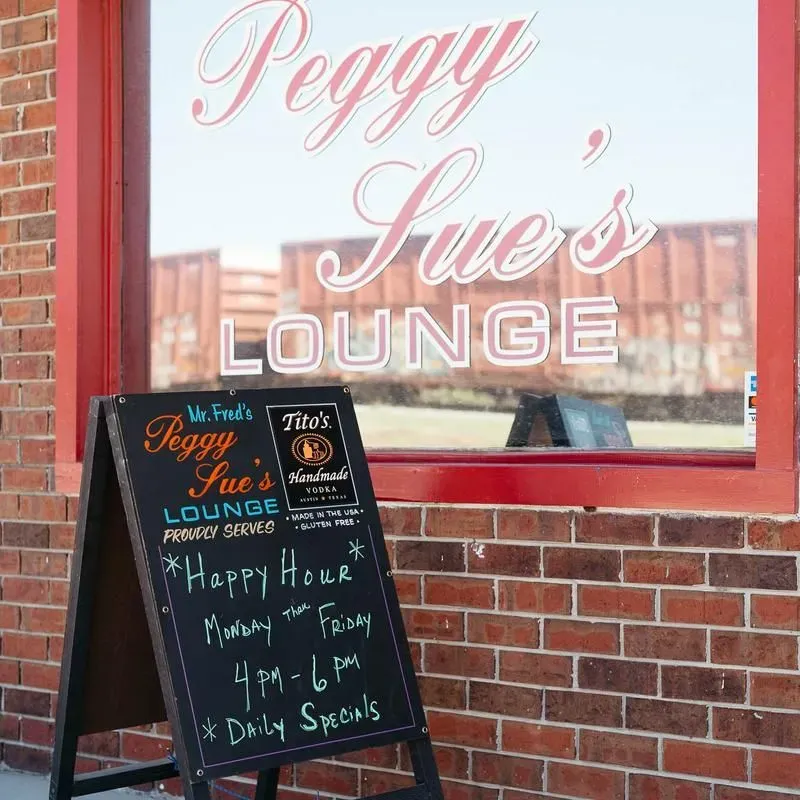 Peggy
Sue's
LOUNGE
Mr. Fred's
Peggy
Sue's
LOUNGE
PROUDLY SERVES
Tito's
Handmade
VODKA
AUSTIN TEXAS
• MADE IN THE USA •
• GLUTEN FREE •
*HAPPY HOUR*
MONDAY thru FRIDAY
4PM - 6PM
* DAILY SPECIALS